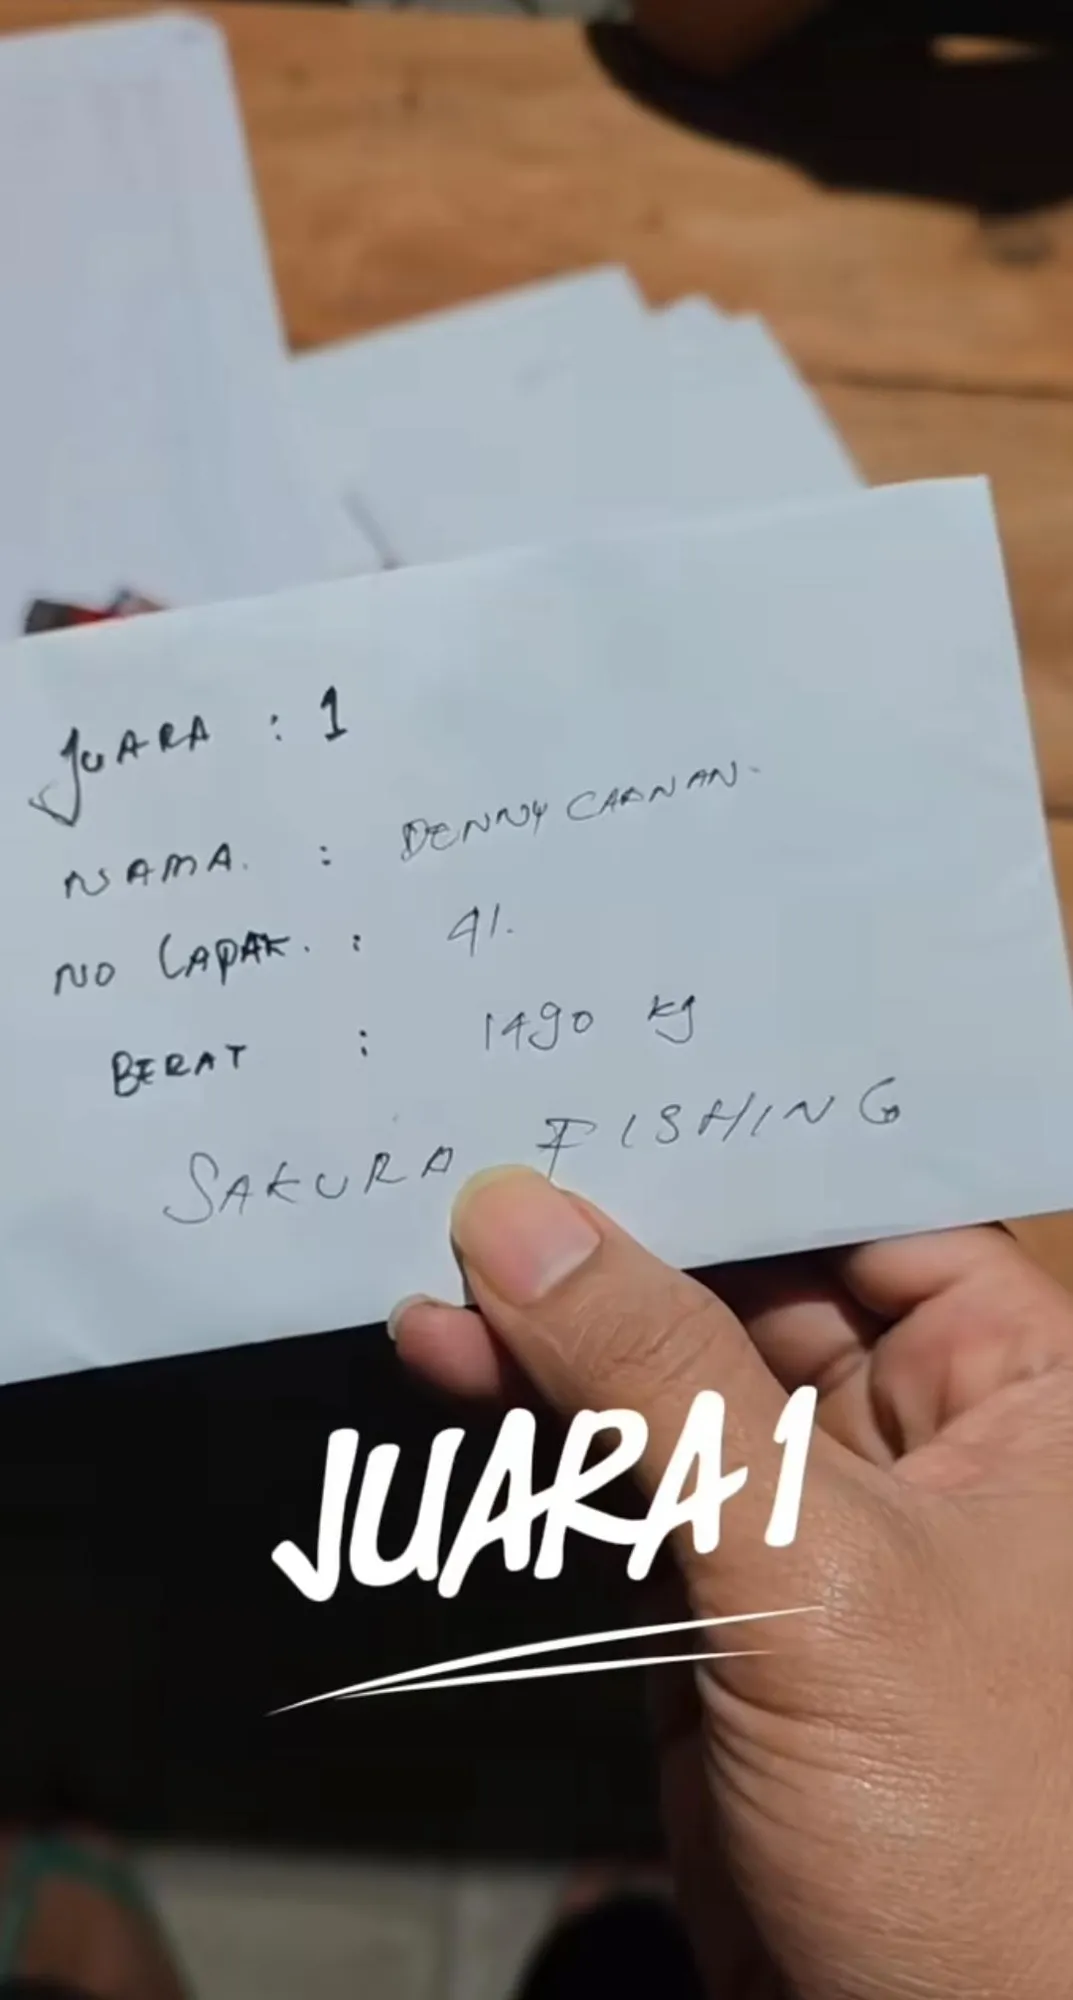 JUARA : 1
NAMA. : DENNY CAANAN.
NO LAPAK. : 41.
BERAT : 1490 kg
SAKURA FISHING
JUARA 1